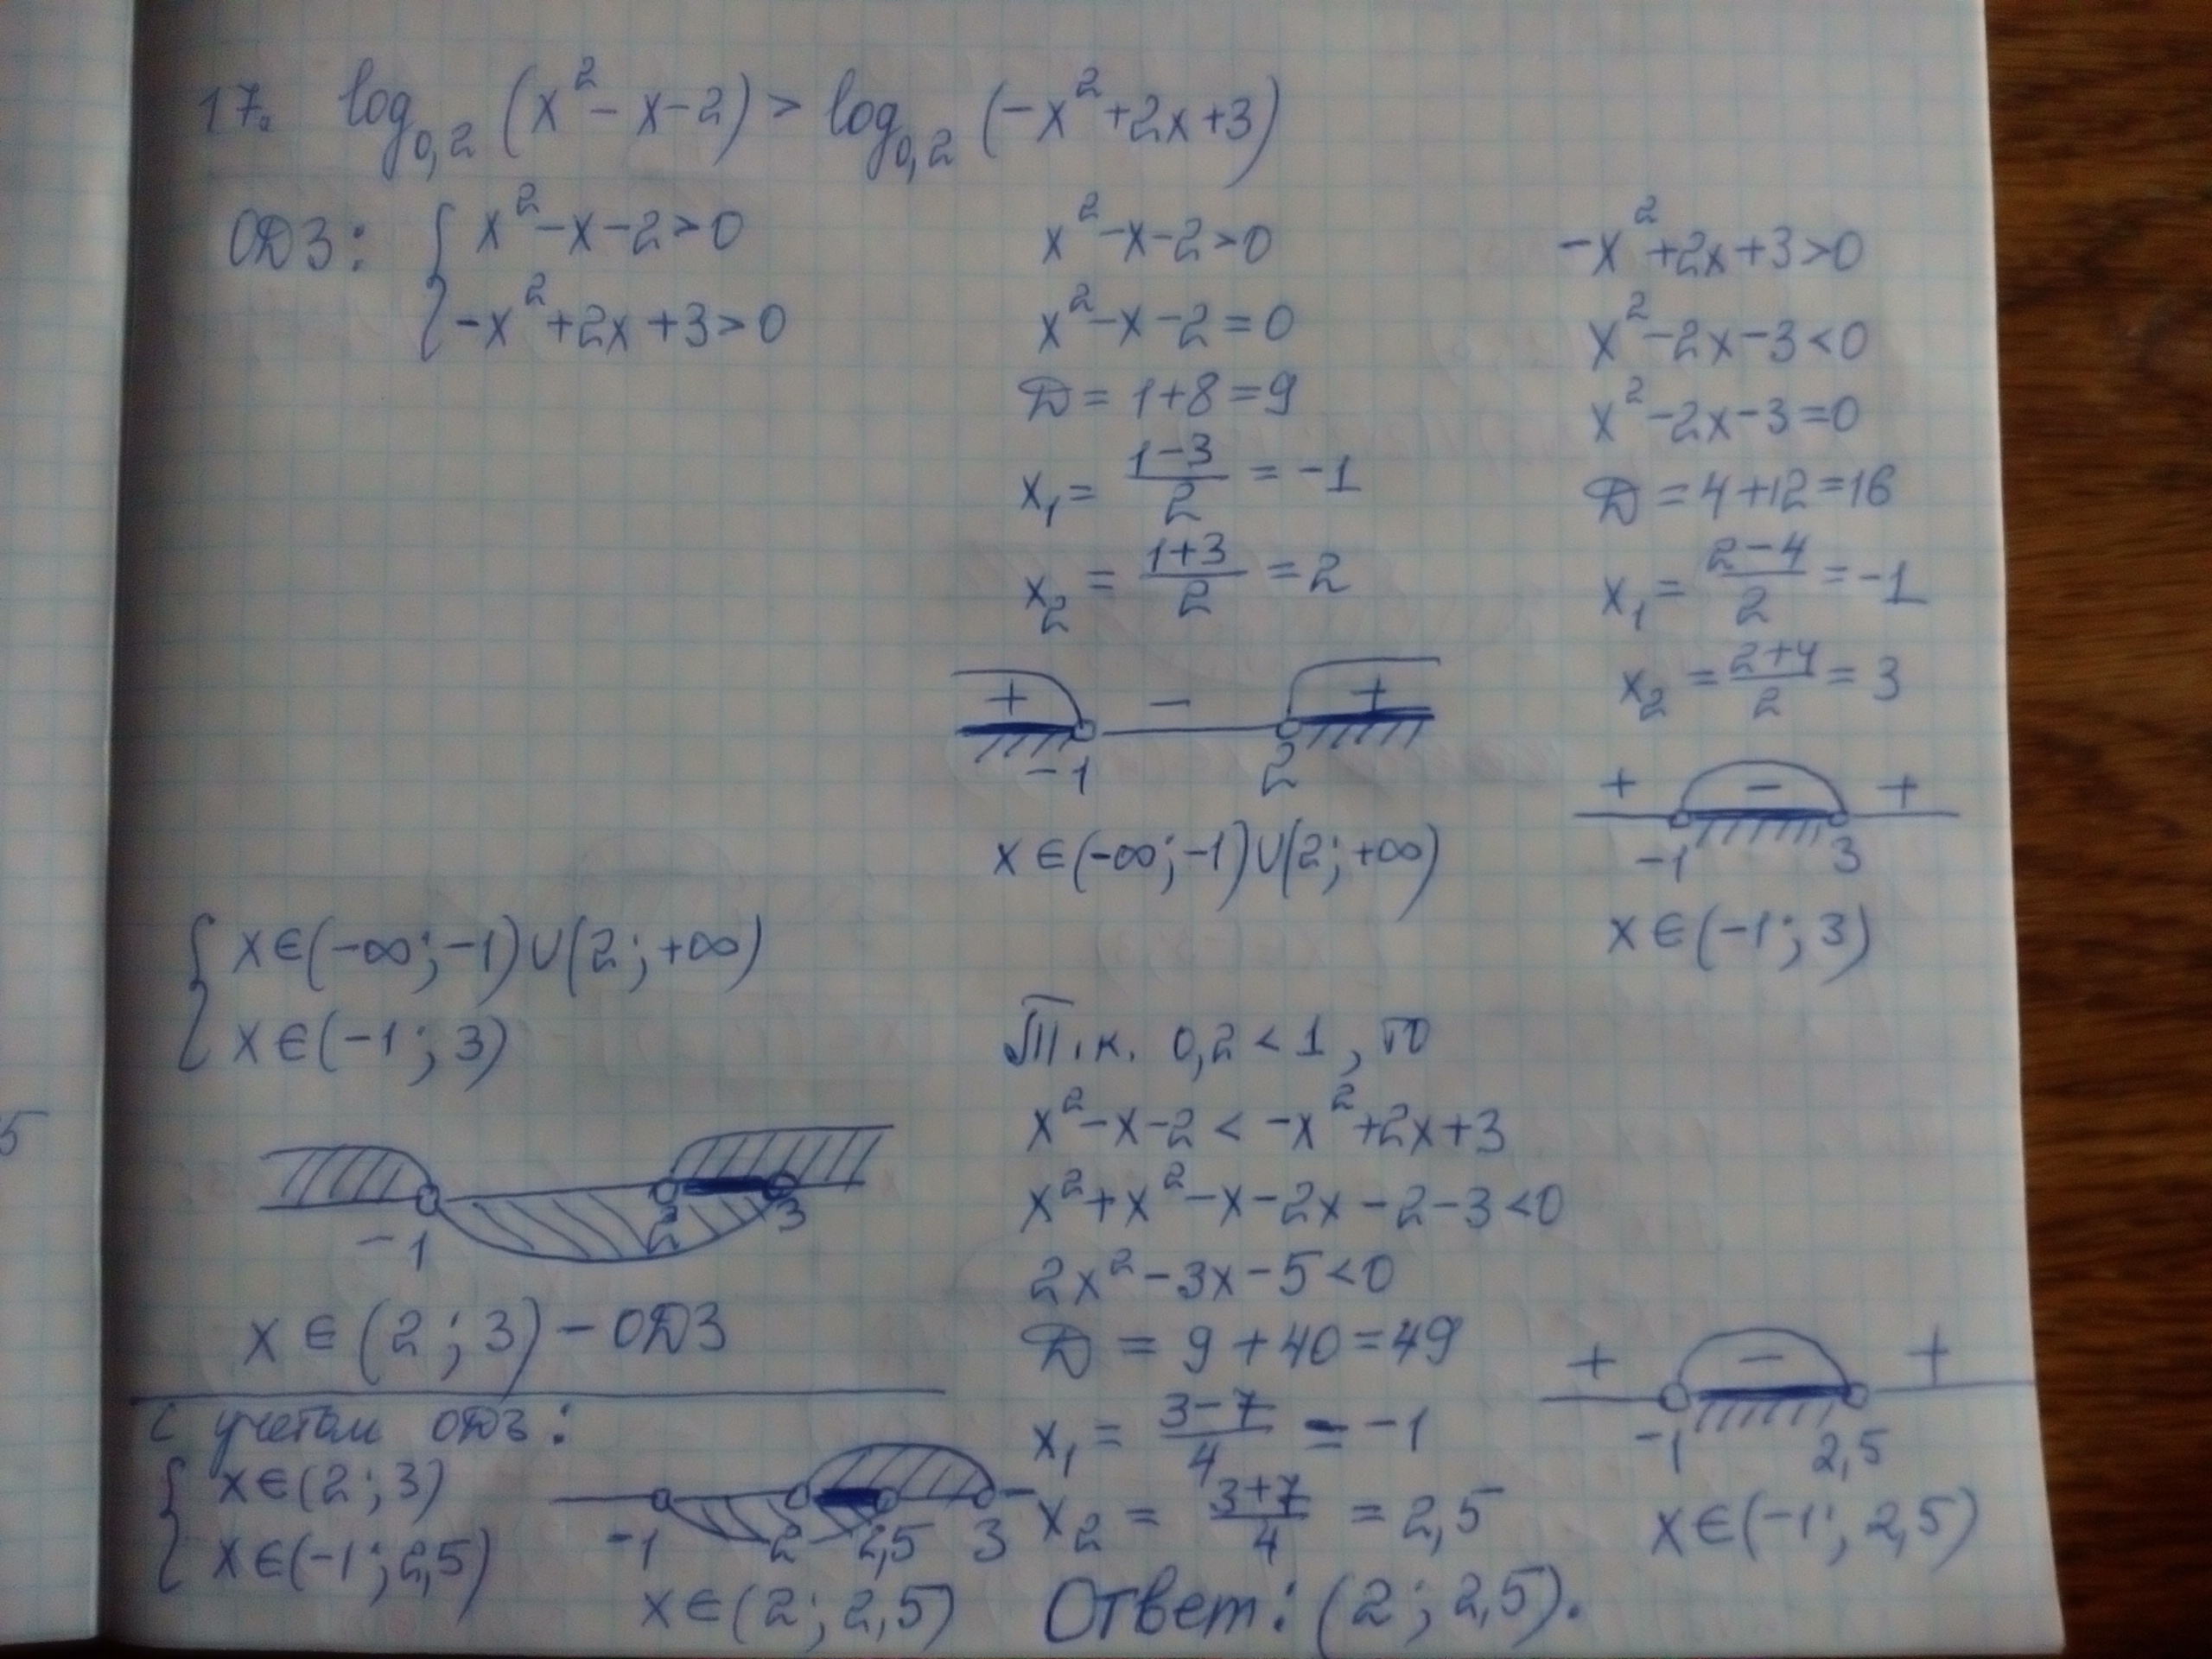 17. log₀,₂ (x² - x - 2) > log₀,₂ (-x² + 2x + 3)
ОДЗ: { x² - x - 2 > 0
-x² + 2x + 3 > 0
x² - x - 2 > 0
x² - x - 2 = 0
D = 1 + 8 = 9
x₁ = (1 - 3)/2 = -1
x₂ = (1 + 3)/2 = 2
+ - +
-1 2
x ∈ (-∞; -1) ∪ (2; +∞)
-x² + 2x + 3 > 0
x² - 2x - 3 < 0
x² - 2x - 3 = 0
D = 4 + 12 = 16
x₁ = (2 - 4)/2 = -1
x₂ = (2 + 4)/2 = 3
+ - +
-1 3
x ∈ (-1; 3)
{ x ∈ (-∞; -1) ∪ (2; +∞)
x ∈ (-1; 3)
-1 2 3
x ∈ (2; 3) - ОДЗ
Т.к. 0,2 < 1, то
x² - x - 2 < -x² + 2x + 3
x² + x² - x - 2x - 2 - 3 < 0
2x² - 3x - 5 < 0
D = 9 + 40 = 49
x₁ = (3 - 7)/4 = -1
x₂ = (3 + 7)/4 = 2,5
+ - +
-1 2,5
x ∈ (-1; 2,5)
С учетом ОДЗ:
{ x ∈ (2; 3)
x ∈ (-1; 2,5)
-1 2 2,5 3
x ∈ (2; 2,5)
Ответ: (2; 2,5).
5